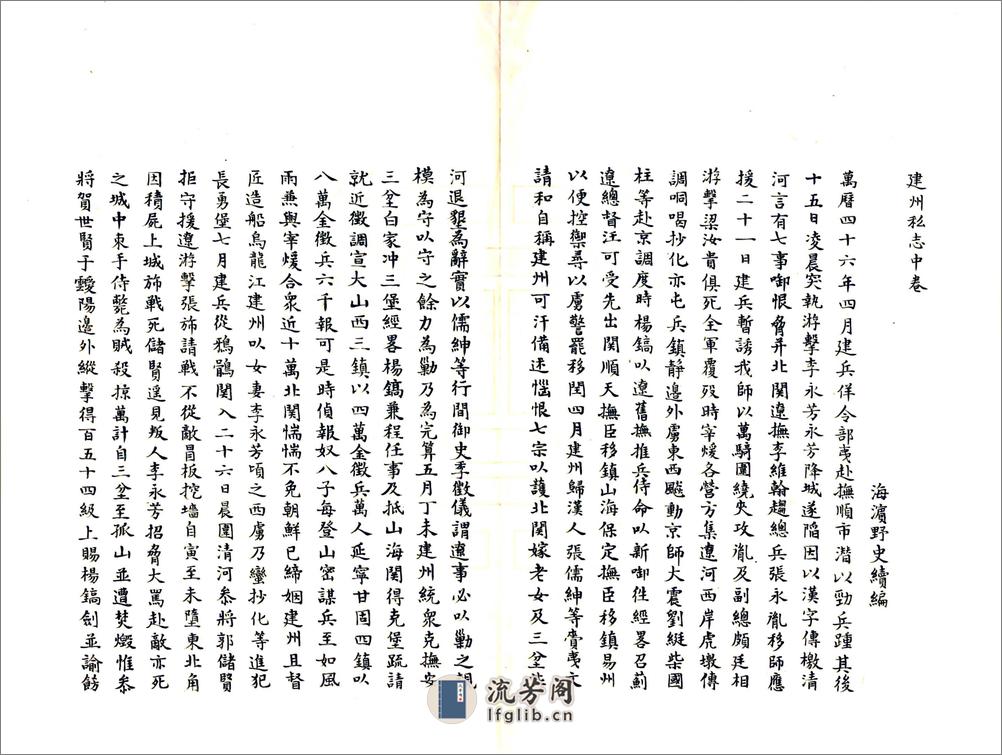 建州私志中卷
海濵野史續編
萬曆四十六年四月建兵佯令部夷赴撫順市潛以勁兵踵其後
十五日凌晨突執游擊李永芳永芳降城遂陷因以漢字傳檄清
河言有七事卹恨脅并北關遼撫李維翰趨總兵張永胤移師應
援二十一日建兵暫誘我師以萬騎圍繞夾攻胤及副總頗廷相
游擊梁汝貴俱死全軍覆殁時宰煖各營方集遼河西岸虎墩傳
調哃喝抄化亦屯兵鎮靜邊外虜東西颷動京師大震劉綎柴國
柱等赴京調度時楊鎬以遼舊撫推兵侍命以新卹徃經畧召薊
遼總督汪可受先出関順天撫臣移鎮山海保定撫臣移鎮易州
以便控禦尋以虜警罷移閏四月建州歸漢人張儒紳等賫夷文
請和自稱建州可汗備述惱恨七宗以護北関嫁老女及三岔
河退墾為辭實以儒紳等行間御史李徵儀謂遼事必以勦之規
模為守以守之餘力為勦乃為完算五月丁未建州統衆克撫安
三岔白家冲三堡經畧楊鎬兼程任事及抵山海関得克堡疏請
就近徵調宣大山西三鎮以四萬金徵兵萬人延寧甘固四鎮以
八萬金徵兵六千報可是時偵報奴八子每登山密謀兵至如風
雨兼與宰煖合衆近十萬北関惴惴不免朝鮮已締姻建州且督
匠造船烏龍江建州以女妻李永芳頃之西虜乃蠻抄化等進犯
長勇堡七月建兵從鴉鶻関入二十六日晨圍清河叅將郭儲賢
拒守援遼游擊張斾請戰不從敵冒板挖墻自寅至未墮東北角
因積屍上城斾戰死儲賢遥見叛人李永芳招脅大罵赴敵亦死
之城中束手待斃為賊殺掠萬計自三岔至孤山並遭焚燬惟叅
將賀世賢于靉陽邊外縱擊得百五十四級上賜楊鎬劍並諭餝
流芳阁
lfglib.cn